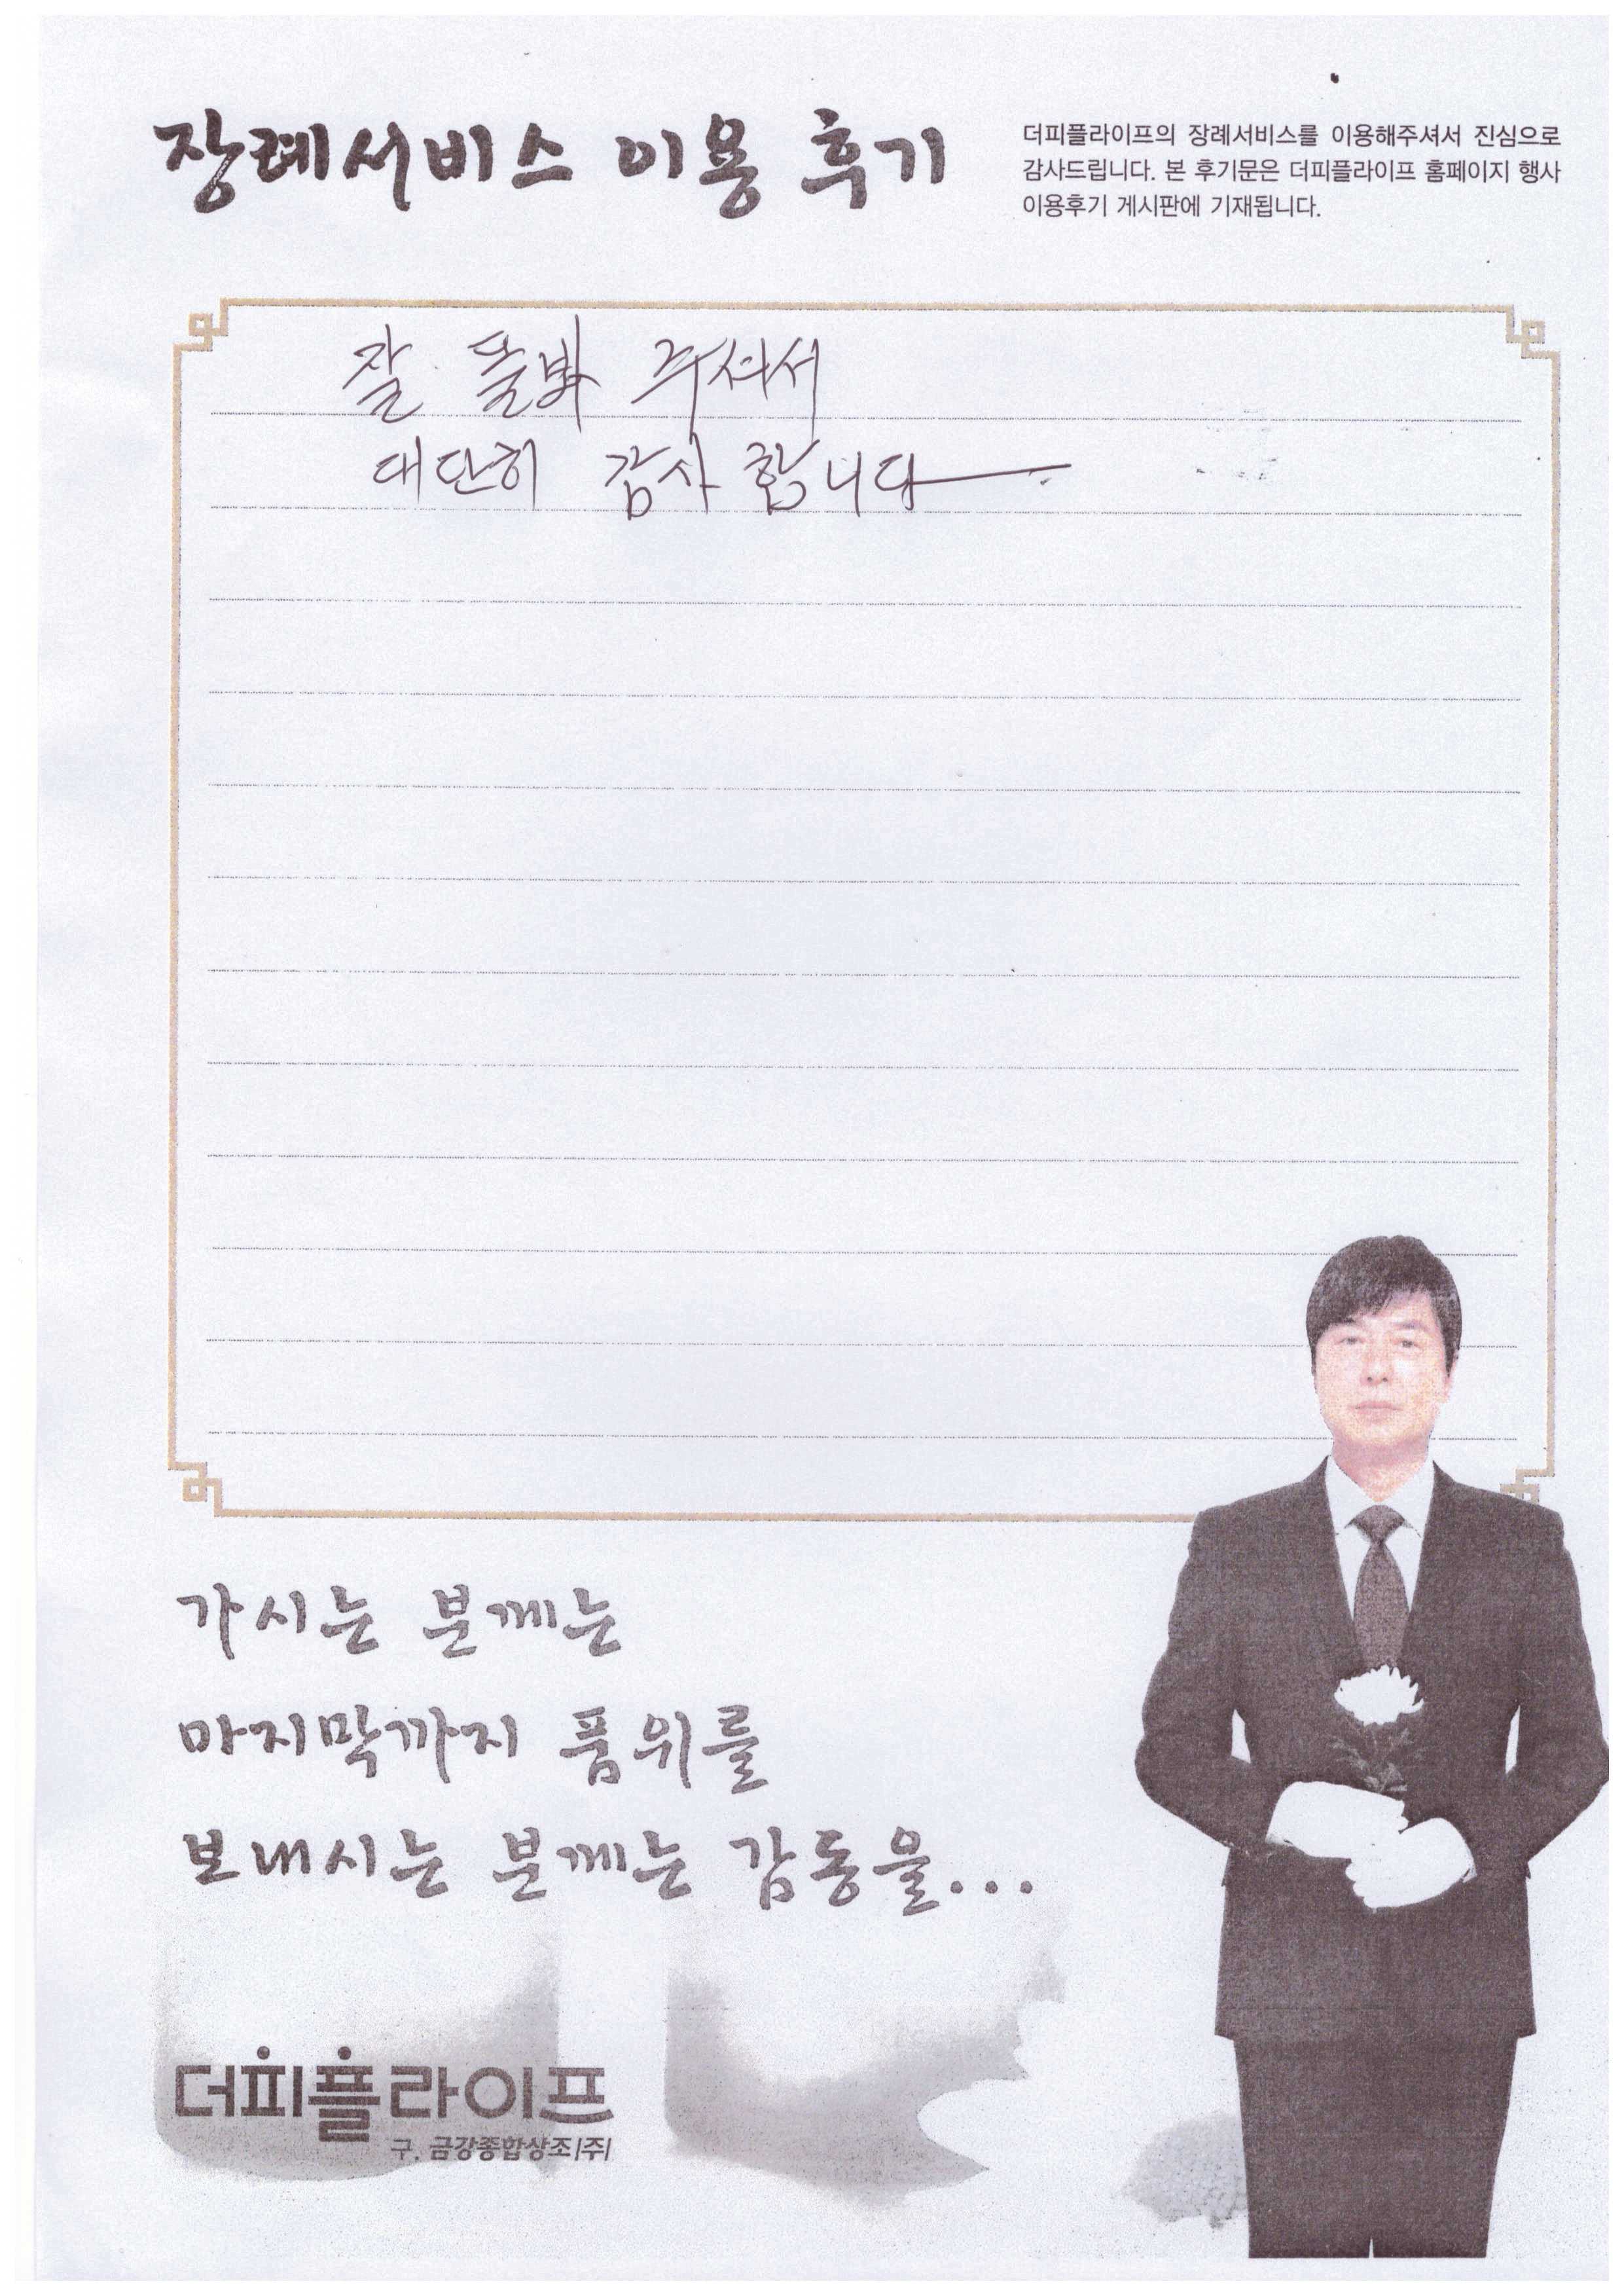 장례서비스 이용 후기
더피플라이프의 장례서비스를 이용해주셔서 진심으로
감사드립니다. 본 후기문은 더피플라이프 홈페이지 행사
이용후기 게시판에 기재됩니다.
잘 돌봐 주셔서
대단히 감사 합니다.
가시는 분께는
마지막까지 품위를
보내시는 분께는 감동을...
더피플라이프
구. 금강종합상조(주)